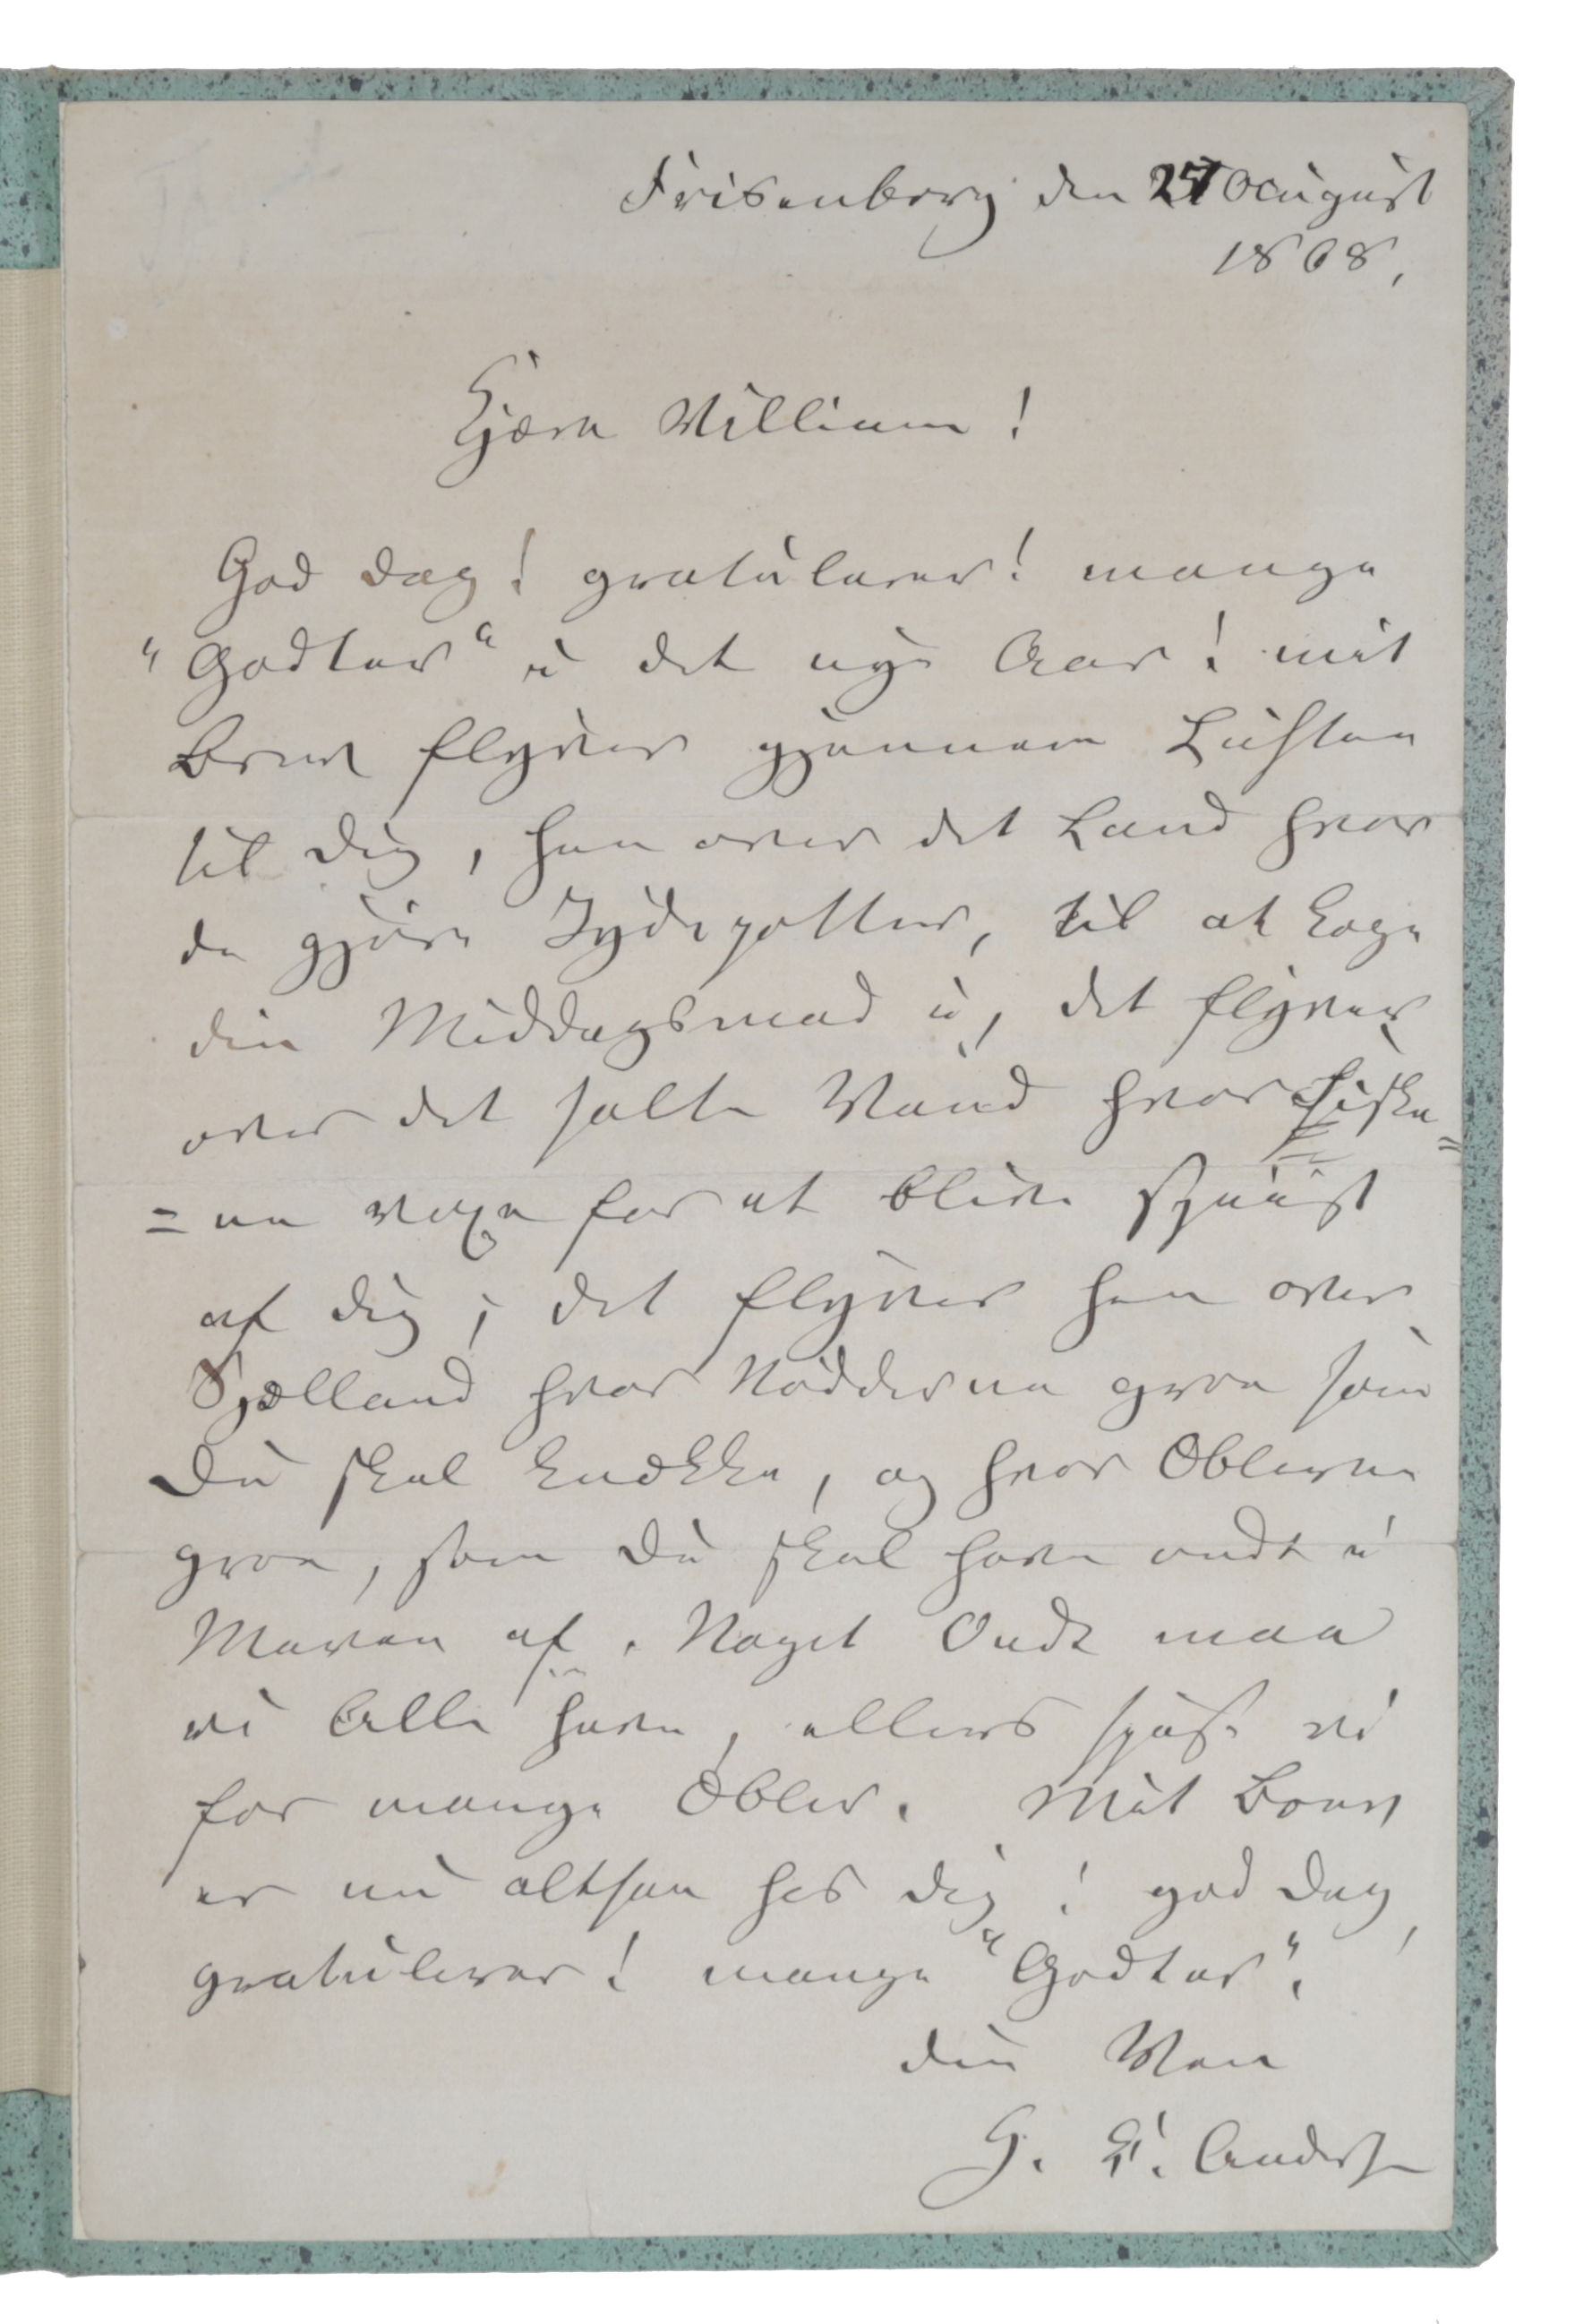 Frisenborg den 27 August
1868.
Kjære William!
God Dag! gratulerer! mange
"Godter" i det nye Aar! mit
Brev flyver gjennem Luften
til Dig, hen over det Land hvor
de gjøre Jydepotter, til at koge
din Middagsmad i, det flyver
over det salte Vand hvor Fiske=
=ne voxe for at blive spiist
af Dig; det flyver hen over
Sjælland hvor Nødderne groe som
Du skal knække, og hvor Æblerne
groe, som Du skal have ondt i
Maven af. Noget Ondt maa
vi Alle have, ellers spise vi
for mange Æbler. Mit Brev
er nu altsaa hos Dig! god Dag,
gratulerer! mange "Godter".
din Ven
H. C. Andersen